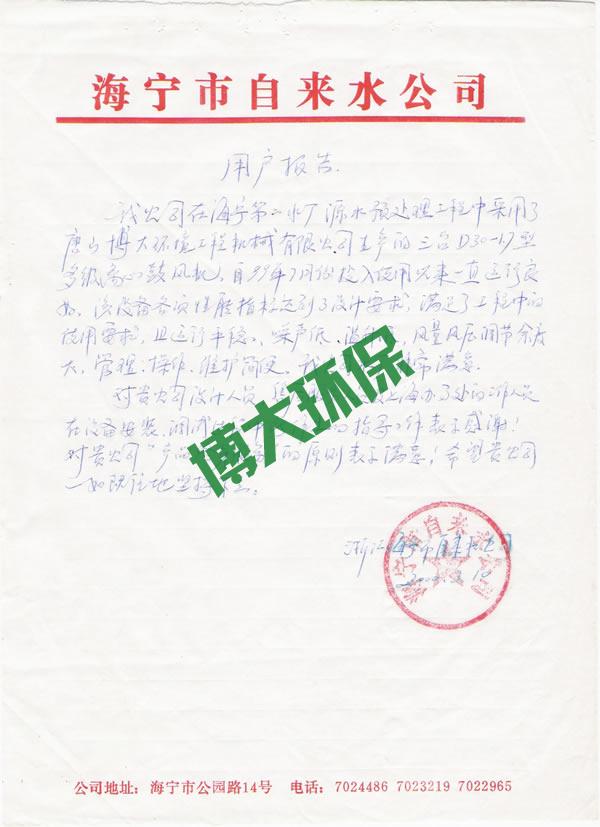 海宁市自来水公司
用户报告
我公司在海宁第二水厂源水预处理工程中采用了
唐山博大环境工程机械有限公司生产的三台D30-1.7型
多级离心鼓风机,自99年7月份投入使用以来一直运行良
好,该设备各项性能指标达到了设计要求,满足了工程中的
使用要求,且运行平稳、噪声低、风量风压调节余度
大,管理、操作、维护简便,我满意。
对贵公司设计人员上海办事处的工作人员
在设备安装、调试的指导工作表示感谢!
对贵公司"产的原则表示满意!希望贵公司
一如既往地坚持
博大环保
浙江海宁市自来水公司
公司地址:海宁市公园路14号 电话:7024486 7023219 7022965